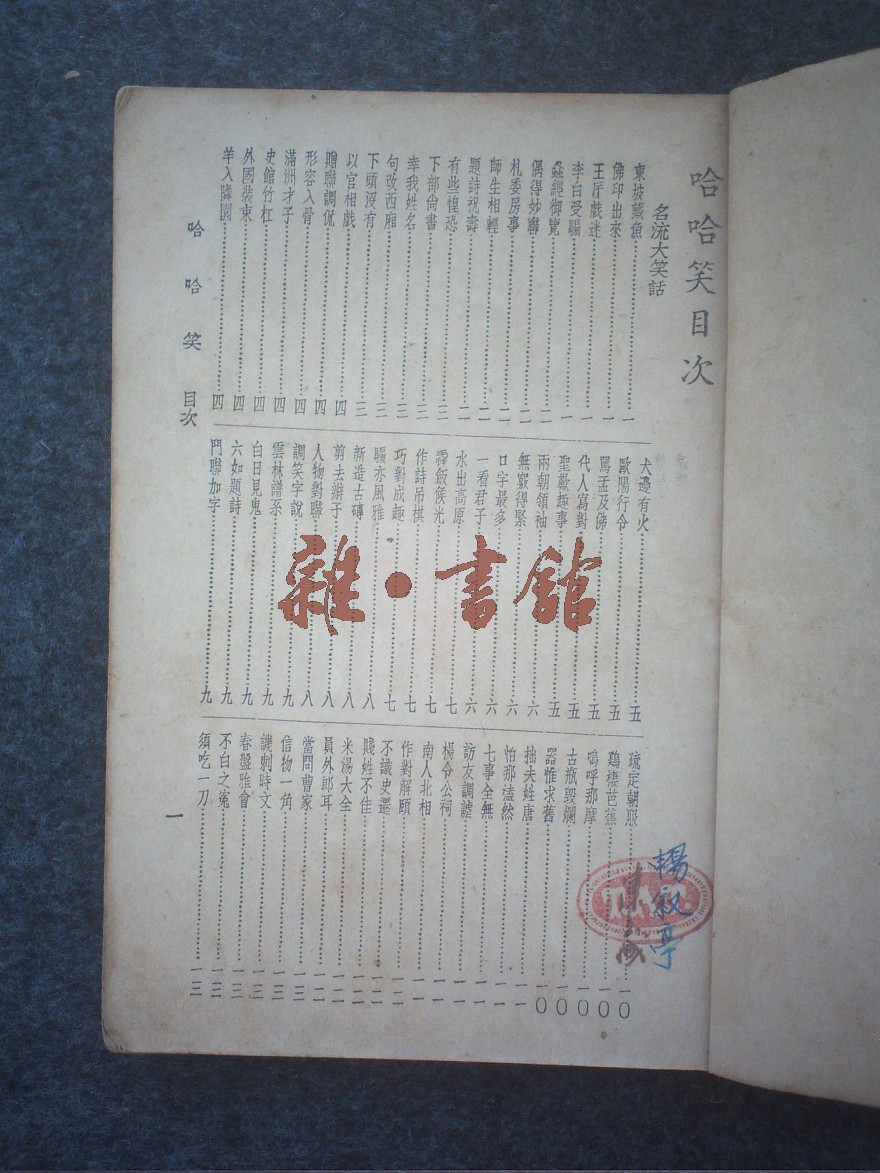 哈哈笑目次
名流大笑話
東坡藏魚……一
佛印出來……一
戲迷……一
李白受騙……一
蝨經御覽……二
偶得妙聯……二
札委房事……二
師生相輕……二
題詩祝壽……二
有些惶恐……三
下部尙書……三
幸我姓名……三
句改西廂……三
下頭沒有……三
以官相戲……四
贈聯調侃……四
形容入骨……四
滿洲才子……四
史館竹杠……四
外國裝束……四
羊入隣園……四
犬邊有火……五
歐陽行令……五
罵孟及佛……五
代人寫對……五
聖歎趣事……五
兩朝領袖……六
無竅得緊……六
口字最多……六
一看君子……六
水出高原……七
候光……七
作詩吊棋……七
巧對成趣……七
驅亦風雅……八
新造古磚……八
剪去辮子……八
人物對聯……八
調笑字說……九
雲林譜系……九
白日見鬼……九
六如題詩……九
門聯加字……九
琉定朝服……一〇
鷄棲芭蕉……一〇
嗚呼那摩……一〇
古瓶毀爛……一〇
器惟求舊……一〇
拙夫姓唐……一一
怕那溘然……一一
七事全無……一一
訪友調謔……一一
楊令公祠……一一
南人北相……一一
作對解頤……一一
不識史遷……一二
賤姓不佳……一二
米湯大全……一二
員外郎耳……一二
當問曹家……一二
信物一角……一三
譏刺時文……一三
春盤雅會……一三
不白之寃……一三
須吃一刀……一三
哈哈笑 目次
一
雜·書館
楊叙亭